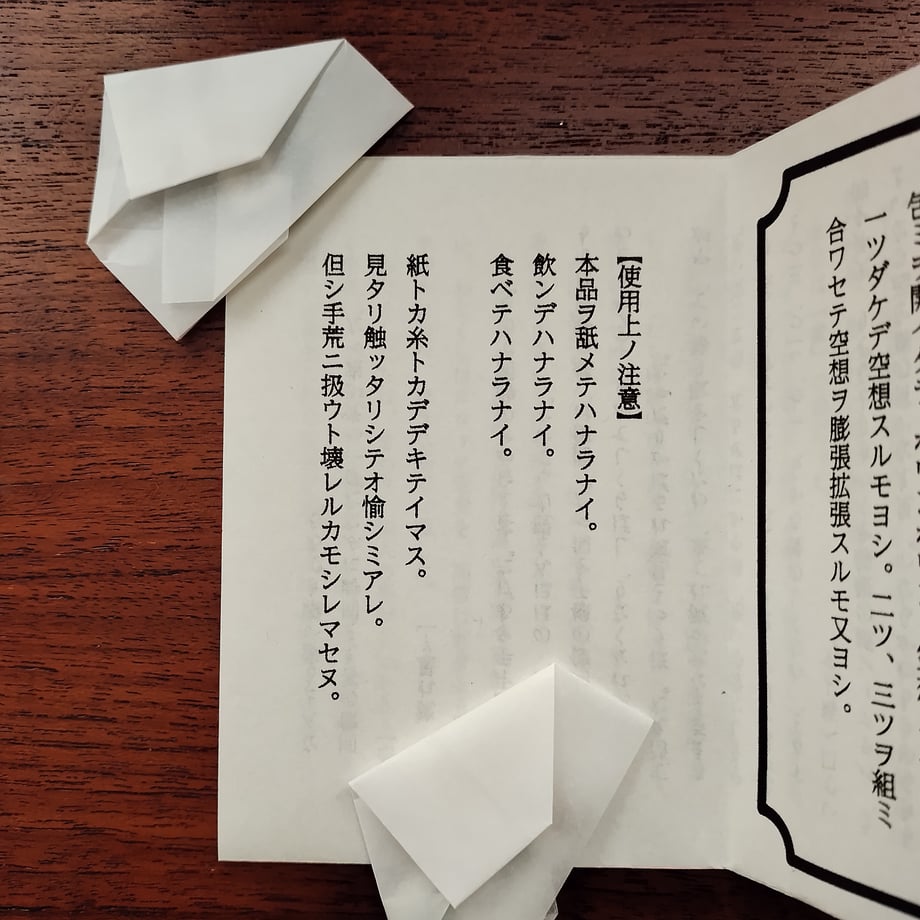 一ツダケデ空想スルモヨシ。二ツ、三ツヲ組ミ
合ワセテ空想ヲ膨張拡張スルモ又ヨシ。
【使用上ノ注意】
本品ヲ舐メテハナラナイ。
飲ンデハナラナイ。
食ベテハナラナイ。
紙トカ糸トカデデキテイマス。
見タリ触ッタリシテオ愉シミアレ。
但シ手荒ニ扱ウト壊レルカモシレマセヌ。